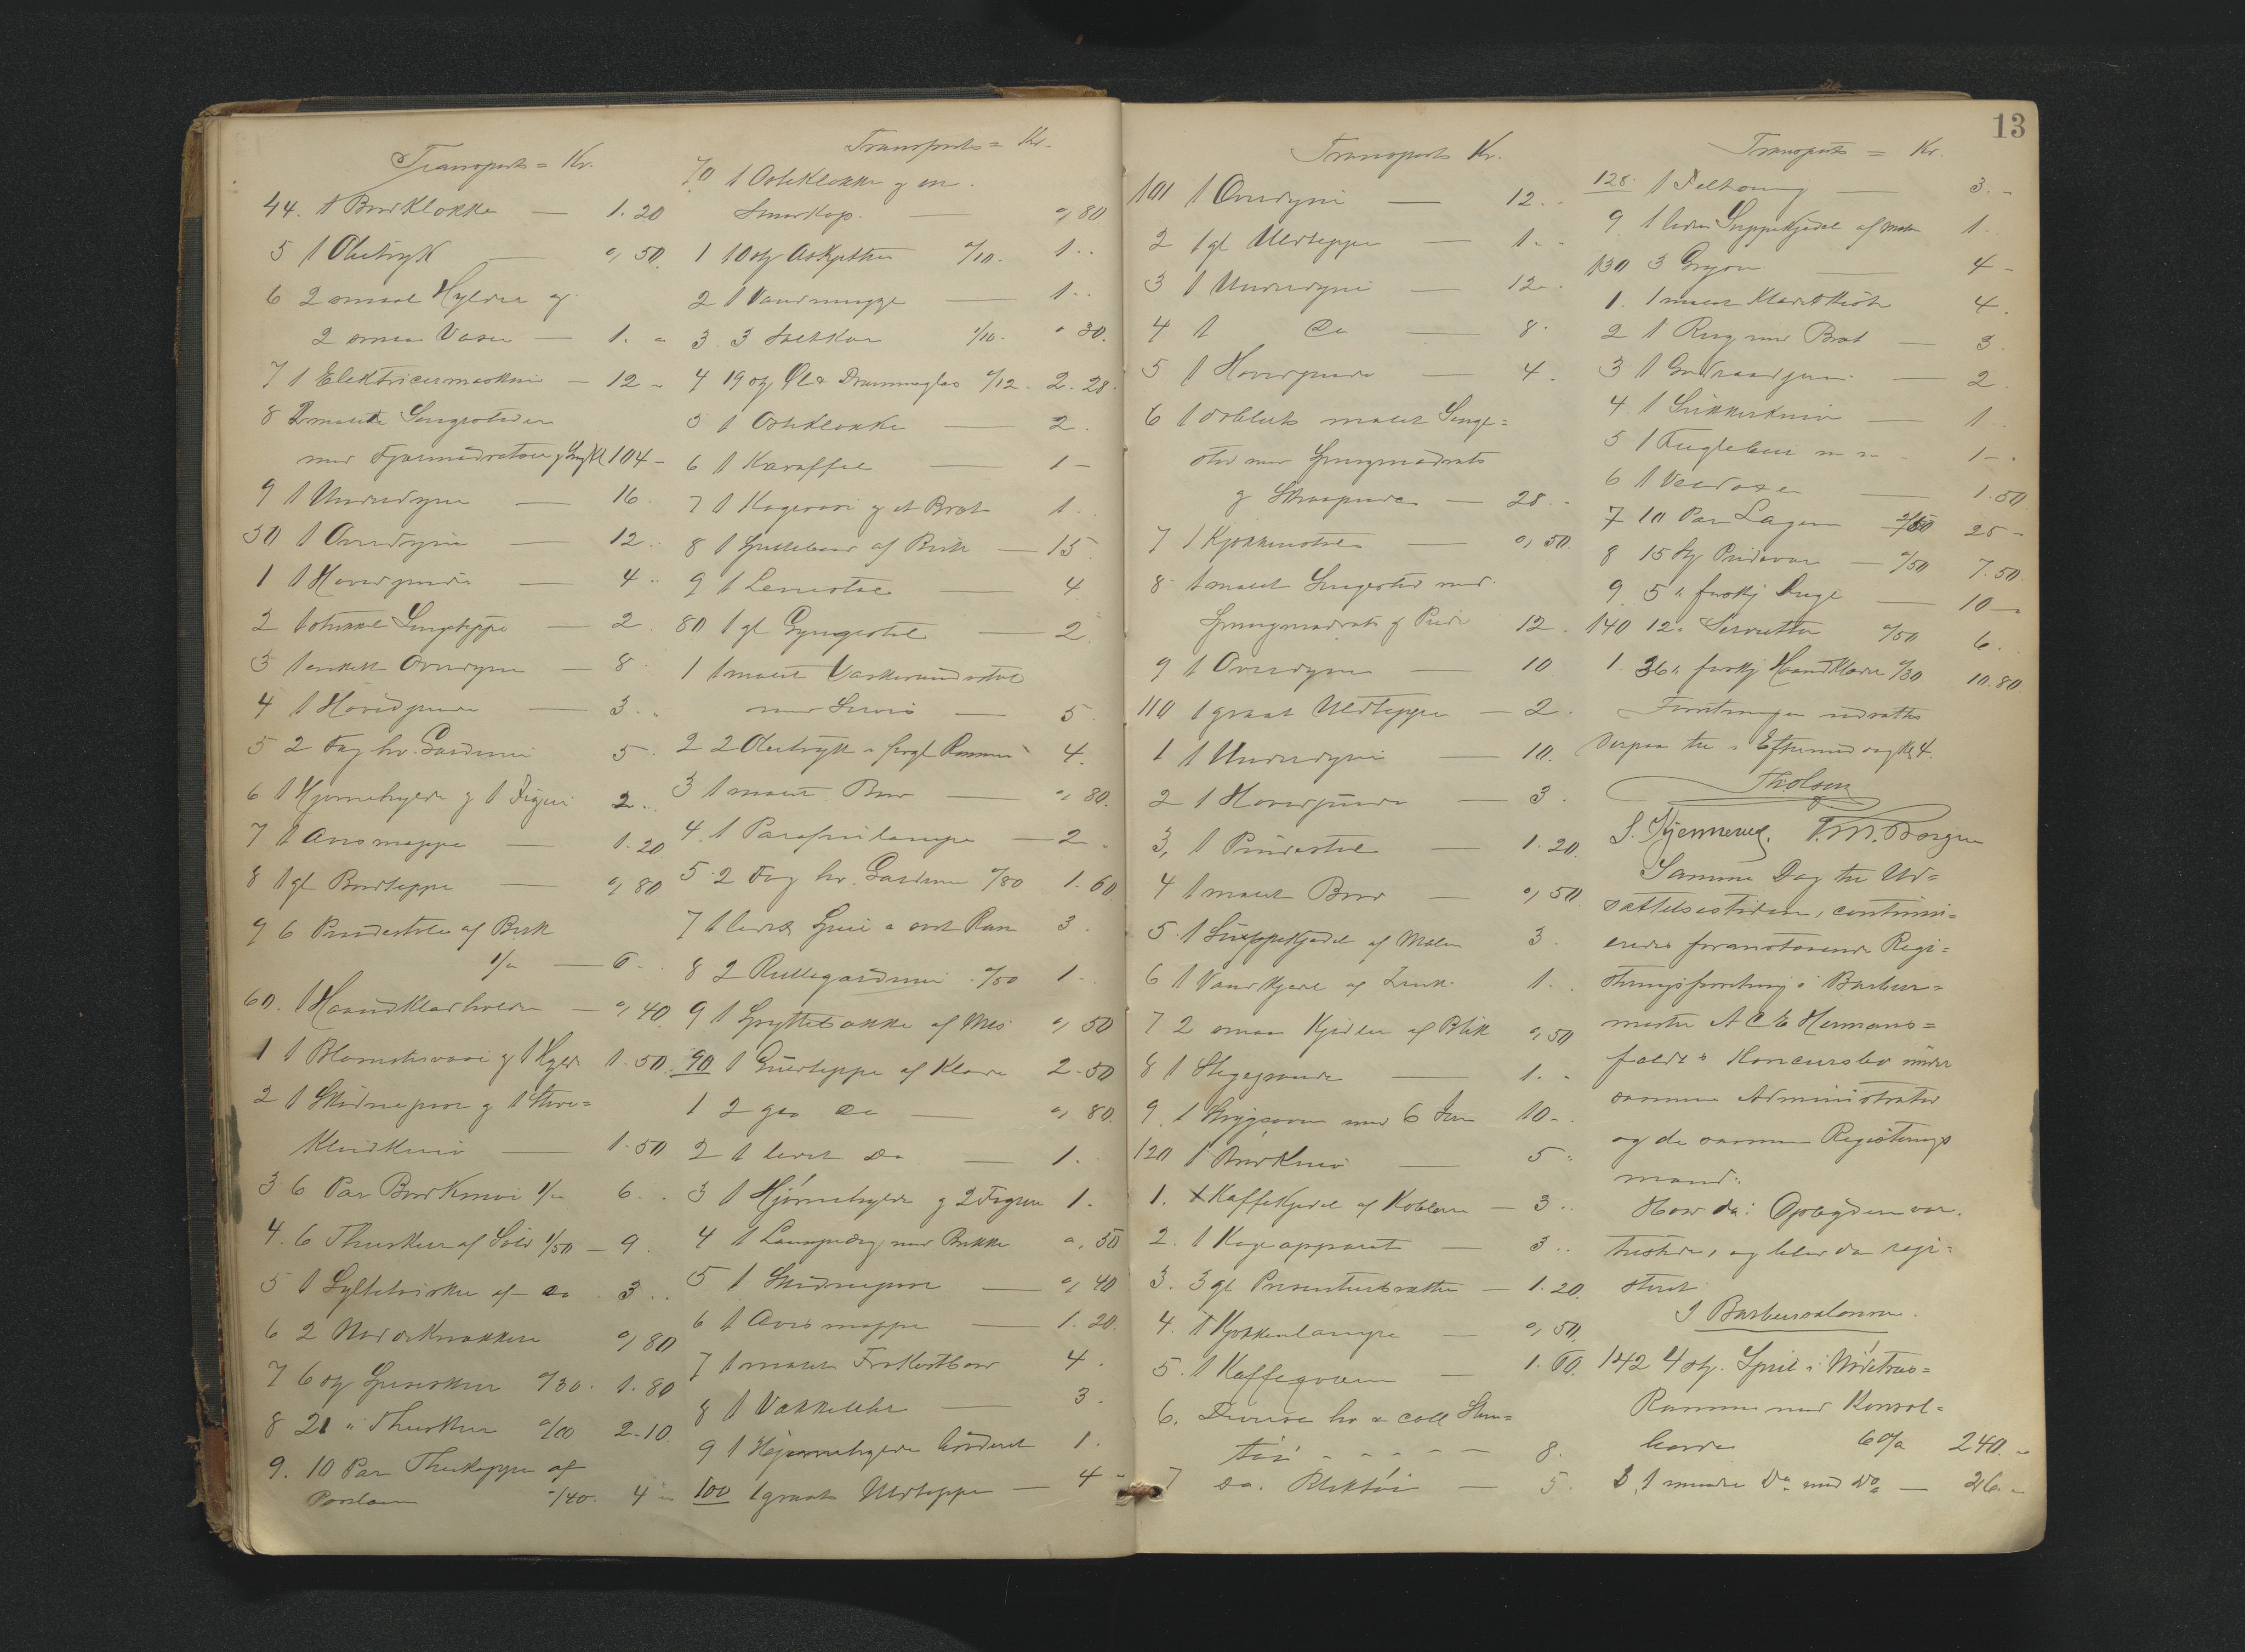 Transport = Kr.
44. 1 Bordklokke — 1.20
5 1 Olietryk — 0,50
6 2 smaa Hylder og
2 smaa Vaser — 1. -
7 1 Elektricermaskine — 12 -
8 2 malede Sengesteder
med Fjærmadratser 104 -
9 1 Underdyne — 16.
50 1 Overdyne — 12 ..
1 1 Hovedpude — 4 ..
2 1 strikket Sengteppe — 2.
3 1 enkelt Overdyne — 8.
4 1 Hovedpude — 3. -
5 2 Fag hv. Gardiner 5.
6 1 Hjørnehylde og 1 Figur 2 ..
7 1 Avismappe — 1.20
8 1 gl Bordteppe — 0,80
9 6 Pindestole af Birk
1/- — 6 ..
60. 1 Haandklædholder — 0,40
1 1 Blomstervase og 1 Hylde 1.50
2 1 og 1
— 1.50
3 6 Par Bordknive 1/- 6 ..
4. 6 Theskeer af Sølv 1/50 — 9.
5 1 Sylteteske af do 3 ..
6 2 Nøddeknækkere 0,80
7 6 stk Spiseskeer 0/30. 1.80
8 21 " Theskeer 0/10 2.10
9. 10 Par Thekopper af
Porslæn 0/40. 4 -
Transport = Kr.
70 1 Osteklokke og en
Smørkop. — 0,80
1 10 stk Asjetter 0/10. 1 ..
2 1 Vandmugge — 1 ..
3. 3 Saltkar 0/10. 0 30.
4 19 stk Øl & Dramglas 0/12. 2.28.
5 1 Osteklokke — 2.
6 1 Karaffel — 1 -
7 1 Kagevase og et Bret 1 ..
8 1 Spillebord af Birk — 15.
9 1 Lænestol — 4
80 1 gl Gyngestol — 2.
1 1 malet Vaskevandsstol
med Servis — 5.
2 2 Olietryk i forgl Rammer 4.
3 1 malet Bord — 0,80.
4. 1 Parafinlampe — 2 -
5. 2 Fag hv. Gardiner 0/80 1.60
7 1 lidet Speil i sort Ram 3.
8 2 Rullegardiner 0/50 1 -
9 1 Spyttebakke af Mes 0,50
90 1 Gulvteppe af Klæde 2.50
1 2 graa do — 0,80.
2 1 lidet do — 1.
3 1 Hjørnehylde og 2 Figurer 1.
4 1 med Brikke 0,50
5 1 — 0,40
6 1 Avismappe — 1.20.
7 1 malet Frokostbord 4.
8 1 Vækkeuhr — 3.
9 1 Hjørnehylde broderet 1.
100 1 graat Uldteppe — 4 -
13
Transport Kr.
101 1 Overdyne — 12 ..
2 1 gl Uldteppe — 1. -
3 1 Underdyne — 12 ..
4 1 do — 8.
5 1 Hovedpude — 4.
6 1 dobbelt malet Senge=
sted med Springmadrats
og Skraapude — 28 ..
7 1 Kjøkkenstol — 0,50.
8 1 malet Sengested med
Springmadrats og Pude 12.
9 1 Overdyne — 10
110 1 graat Uldteppe — 2.
1 1 Underdyne — 10.
2 1 Hovedpude — 3.
3, 1 Pindestol — 1.20.
4 1 malet Bord — 0,50
5. 1 Suppekjedel af Malm 3.
6 1 Vandkjedel af Zink 1. .
7 2 smaa Kjedler af Blik 0,50
8 1 Stegepande — 1. -
9. 1 Strygeovn med 6 Jern 10 ..
120 1 Bordkniv — 5 ..
1. 1 Kaffekjedel af Kobber — 3 ..
2. 1 Kogeapparat — 3 ..
3. 3 gl Presenterbrætter — 1.20.
4. 1 Kjøkkenlampe — 0,50.
5. 1 Kaffekværn — 1.60.
6. Diverse hv & coll Sten=
tøi — 8.
7 do. Bliktøi — 5.
Transport = Kr.
128. 1 — 3. -
9 1 liden Suppekjedel af Malm 1.
130 3 Gryder — 4 -
1. 1 malet Klædeskiste 4.
2 1 med Bræt — 3.
3 1 — 2.
4. 1 Sukkerkniv — 1.
5 1 Fuglebur m m. 1 - .
6 1 Vedkasse — 1.50
7 10 Par Lagen 2/50 25 -
8 15 Stk Pudevar — 0/50 7.50.
9. 5 " forskj Duge — 10 -
140 12 " Servietter 0/50 6.
1. 36 " forskj Haandklæder 0/30 10.80.
Forretningen udsattes
derpaa til i Eftermiddag Kl 4.
Th. Olsen
S. Kjennerud. P. M. Borgen
Samme Dag til Ud=
sættelsestiden, continu=
eredes foranstaaende Regi=
streringsforretning i Barber=
mester A C E Hermans=
foeldt's Concursbo under
samme Administrator
og de samme Registrerings
mænd.
Hos da: Opbyderen var
tilstede, og blev da regi=
streret
I Barbersalonen.
142 4 stk. Speil i Nødetræs=
Rammer med Konsol=
borde 60/- 240. -
3 1 mindre Do med Do — 26. -